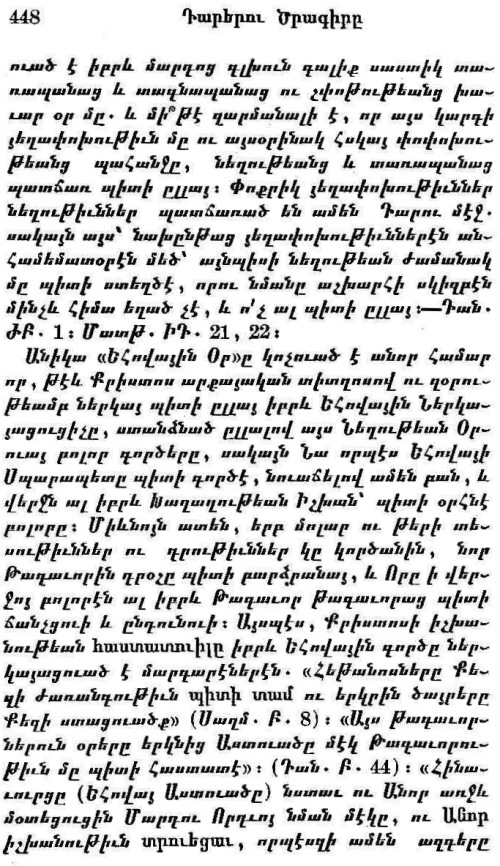 448 Դարերու Ծրագիրը
ուած է իբրև մարդոց գլխուն գալիք սաստիկ տա-
ռապանաց և տագնապանաց ու շփոթութեանց խա-
ւար օր մը. և մի՞թէ զարմանալի է, որ այս կարգի
յեղափոխութիւն մը ու այսօրինակ հսկայ փոփոխու-
թեանց պահանջը, նեղութեանց և տառապանաց
պատճառ պիտի ըլլայ։ Փոքրիկ յեղափոխութիւններ
նեղութիւններ պատճառած են ամեն Դարու մէջ.
սակայն այս՝ նախընթաց յեղափոխութիւններէն ան-
համեմատօրէն մեծ՝ այնպիսի նեղութեան ժամանակ
մը պիտի ստեղծէ, որու նմանը աշխարհի սկիզբէն
մինչև հիմա եղած չէ, և ո՛չ ալ պիտի ըլլայ։—Դան.
ԺԲ. 1։ Մատթ. ԻԴ. 21, 22։
Անիկա «Եհովային Օր»ը կոչուած է անոր համար
որ, թէև Քրիստոս արքայական տիտղոսով ու զօրու-
թեամբ ներկայ պիտի ըլլայ իբրև Եհովային Ներկա-
յացուցիչը, ստանձնած ըլլալով այս Նեղութեան Օր-
ուայ բոլոր գործերը, սակայն Նա որպէս Եհովայի
Սպարապետը պիտի գործէ, նուաճելով ամեն բան, և
վերջն ալ իբրև Խաղաղութեան Իշխան՝ պիտի օրհնէ
բոլորը։ Միևնոյն ատեն, երբ մոլար ու թերի տե-
սութիւններ ու դրութիւններ կը կործանին, նոր
Թագաւորին դրօշը պիտի բարձրանայ, և Որը ի վեր-
ջոյ բոլորէն ալ իբրև Թագաւոր Թագաւորաց պիտի
ճանչցուի և ընդունուի։ Այսպէս, Քրիստոսի իշխա-
նութեան հաստատուիլը իբրև Եհովային գործը ներ-
կայացուած է մարդարէներէն. «Հեթանոսները Քե-
զի ժառանգութիւն պիտի տամ ու երկրին ծայրերը
Քեզի ստացուածք» (Սաղմ. Բ. 8)։ «Այս թագաւոր-
ներուն օրերը երկնից Աստուածը մէկ Թագաւորու-
թիւն մը պիտի հաստատէ»։ (Դան. Բ. 44)։ «Հինա-
ւուրցը (Եհովայ Աստուածը) նստաւ ու Անոր առջև
մօտեցուցին Մարդու Որդւոյ նման մէկը, ու Անոր
իշխանութիւն տրուեցաւ, որպէսզի ամեն ազգերը